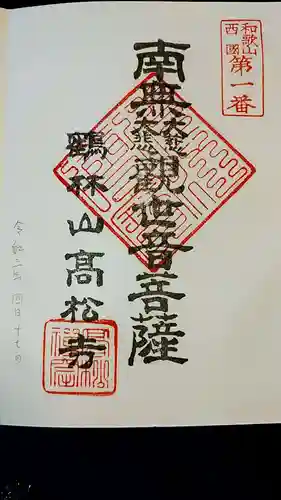 和歌山
西國
第一番
南無大慈大悲觀世音菩薩
鶴林山高松寺
令和二年 四月十七日